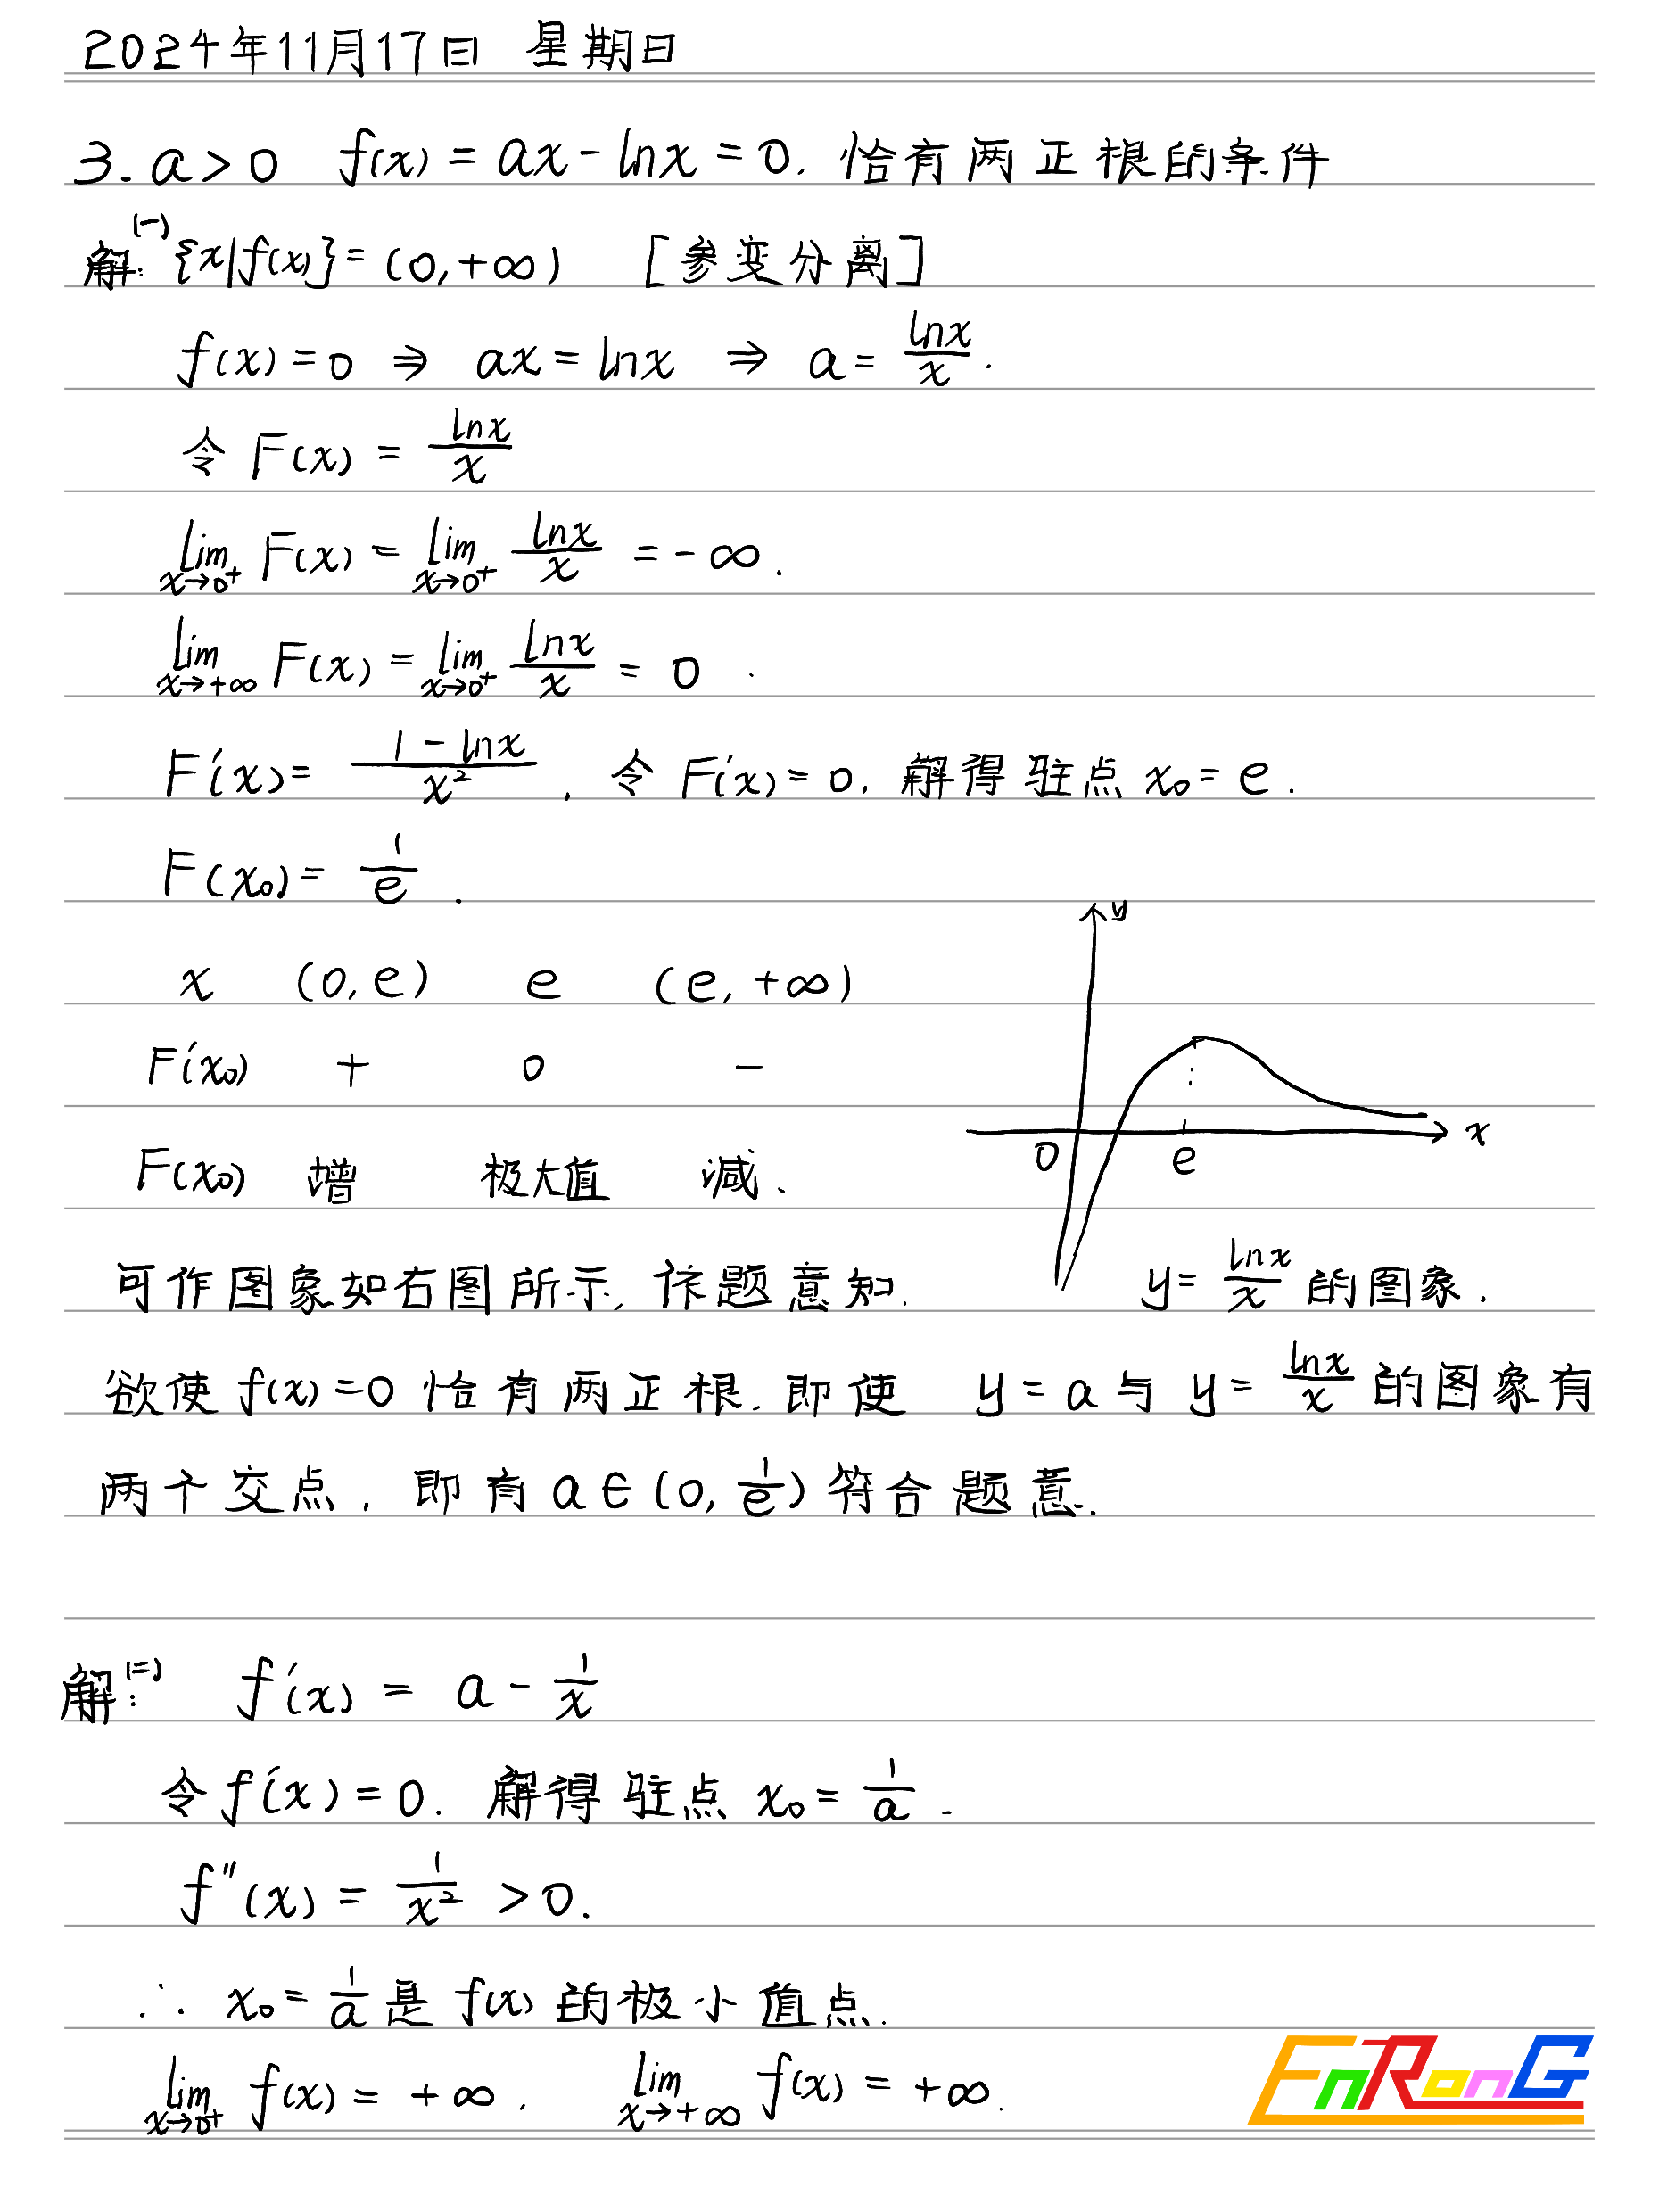 2024年11月17日 星期日
3. a>0 f(x) = ax - lnx = 0. 恰有两正根的条件
解:(一) {x|f(x)} = (0,+∞) [参变分离]
f(x) = 0 ⇒ ax = lnx ⇒ a = lnx/x.
令 F(x) = lnx/x
lim x→0⁺ F(x) = lim x→0⁺ lnx/x = -∞.
lim x→+∞ F(x) = lim x→0⁺ lnx/x = 0.
F'(x) = (1-lnx)/x². 令 F'(x) = 0. 解得 驻点 x₀ = e.
F(x₀) = 1/e.
x (0,e) e (e,+∞)
F'(x₀) + 0 -
F(x₀) 增 极大值 减.
y
0 e x
可作图象如右图所示, 作题意知.
y = lnx/x 的图象.
欲使 f(x)=0 恰有两正根. 即使 y = a 与 y = lnx/x 的图象有
两个交点, 即有 a∈(0, 1/e) 符合题意.
解:(二) f'(x) = a - 1/x
令 f'(x) = 0. 解得 驻点 x₀ = 1/a.
f''(x) = 1/x² > 0.
∴ x₀ = 1/a 是 f(x) 的极小值点.
lim x→0⁺ f(x) = +∞. lim x→+∞ f(x) = +∞.
EnRonG